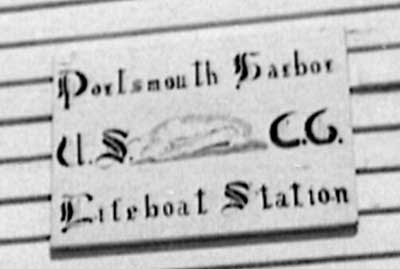 Portsmouth Harbor
U.S. C.G.
Lifeboat Station